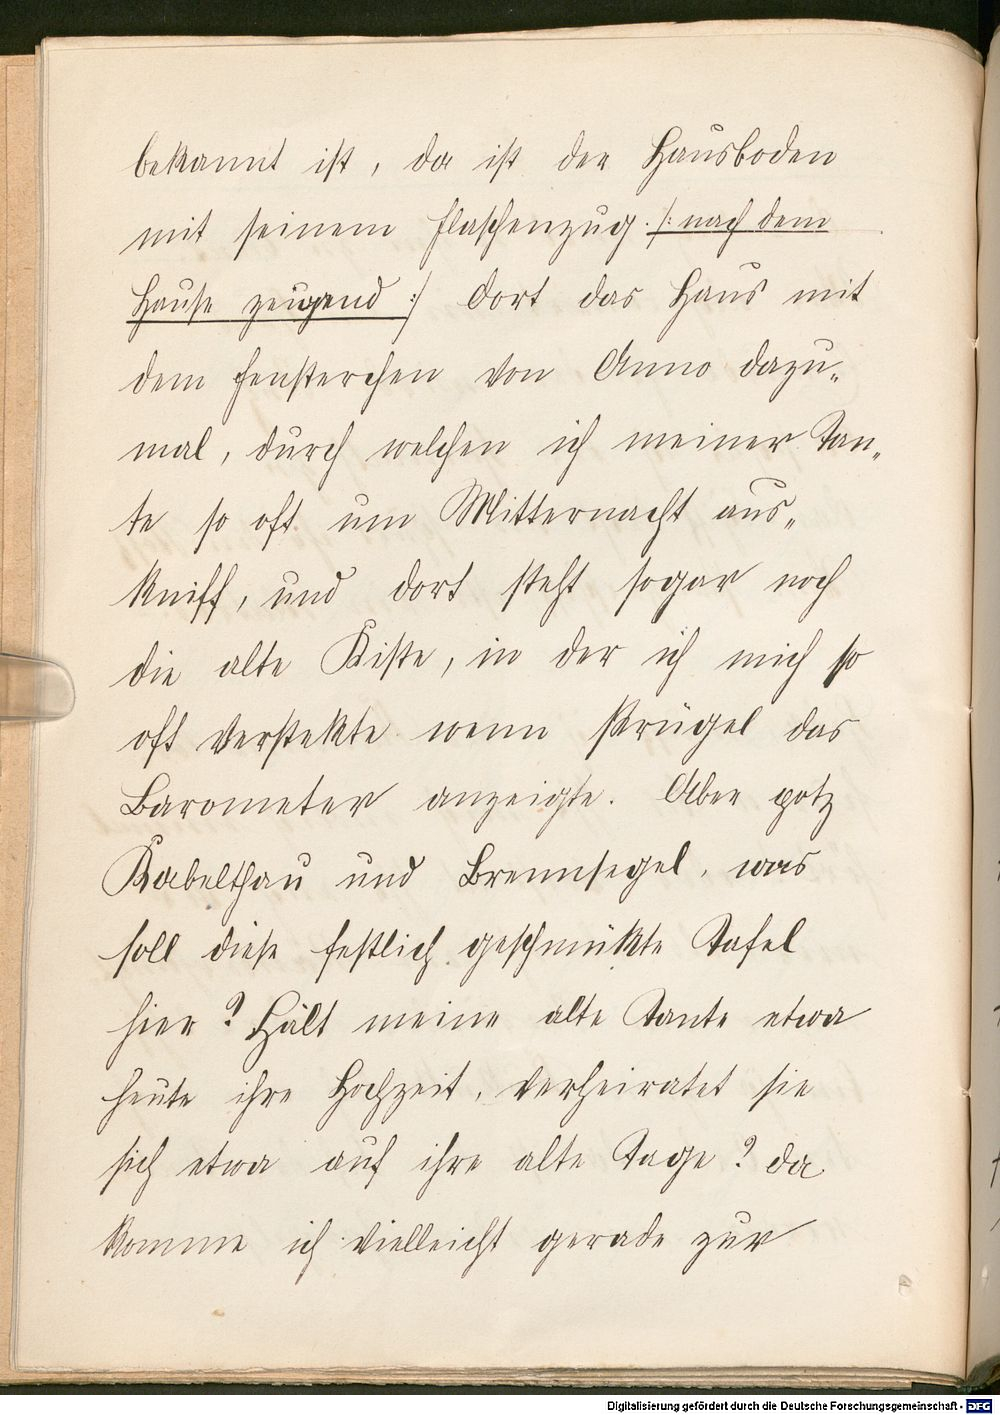 bekannt ist, da ist der Hausboden
mit seinem Flaschenzug. /: nach dem
Hause zeigend :/ dort das Haus mit
dem Fensterchen von Anno dazu„
mal, durch welchen ich meiner Tan„
te so oft um Mitternacht aus„
kniff, und dort steht sogar noch
die alte Kiste, in der ich mich so
oft verstekte wenn Prügel das
Barometer anzeigte. Aber potz
Kabelthau und Bremsegel, was
soll diese festlich geschmükte Tafel
hier? Hält meine alte Tante etwa
heute ihre Hochzeit, verheiratet sie
sich etwa auf ihre alte Tage? da
komme ich vielleicht gerade zur
Digitalisierung gefördert durch die Deutsche Forschungsgemeinschaft - DFG